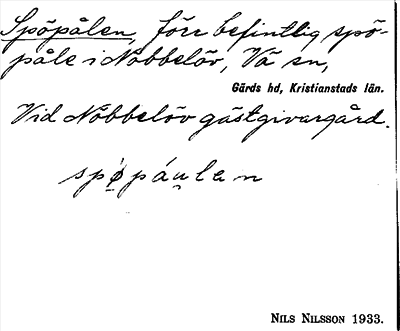 Spöpålen, förr befintlig spö-
påle i Nöbbelöv, Vä sn,
Gärds hd, Kristianstads län.
Vid Nöbbelöv gästgivargård.
spǿpáu̯lan
NILS NILSSON 1933.